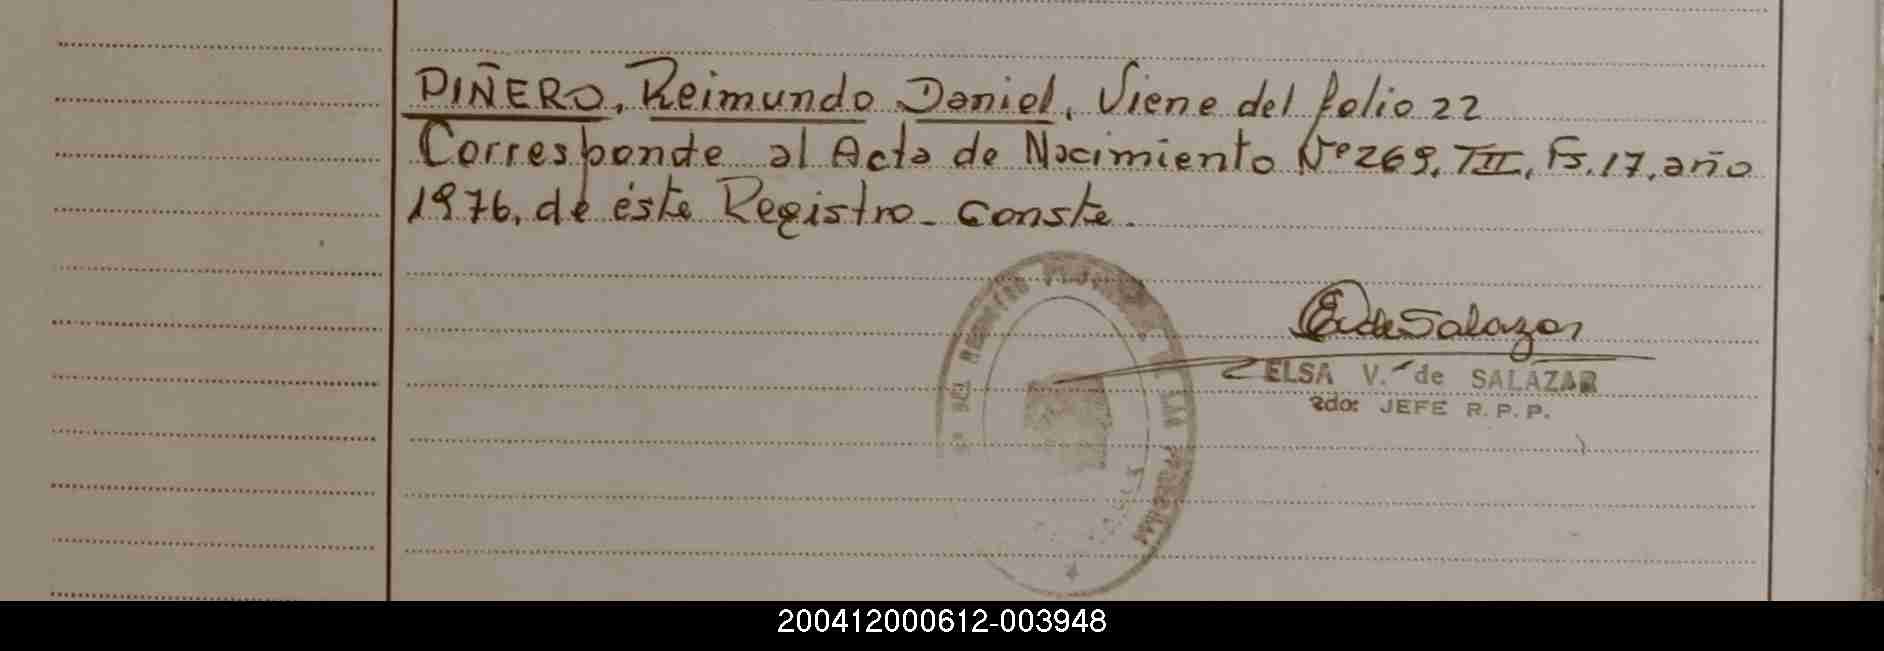 PIÑERO, Reimundo Daniel, Viene del folio 22
Corresponde al Acta de Nacimiento Nº 269, TII, Fs. 17, año
1976, de éste Registro - Conste.
EV de Salazar
ELSA V. de SALAZAR
2do: JEFE R.P.P.
DEL REGISTRO
DE LAS PERSONAS
200412000612-003948